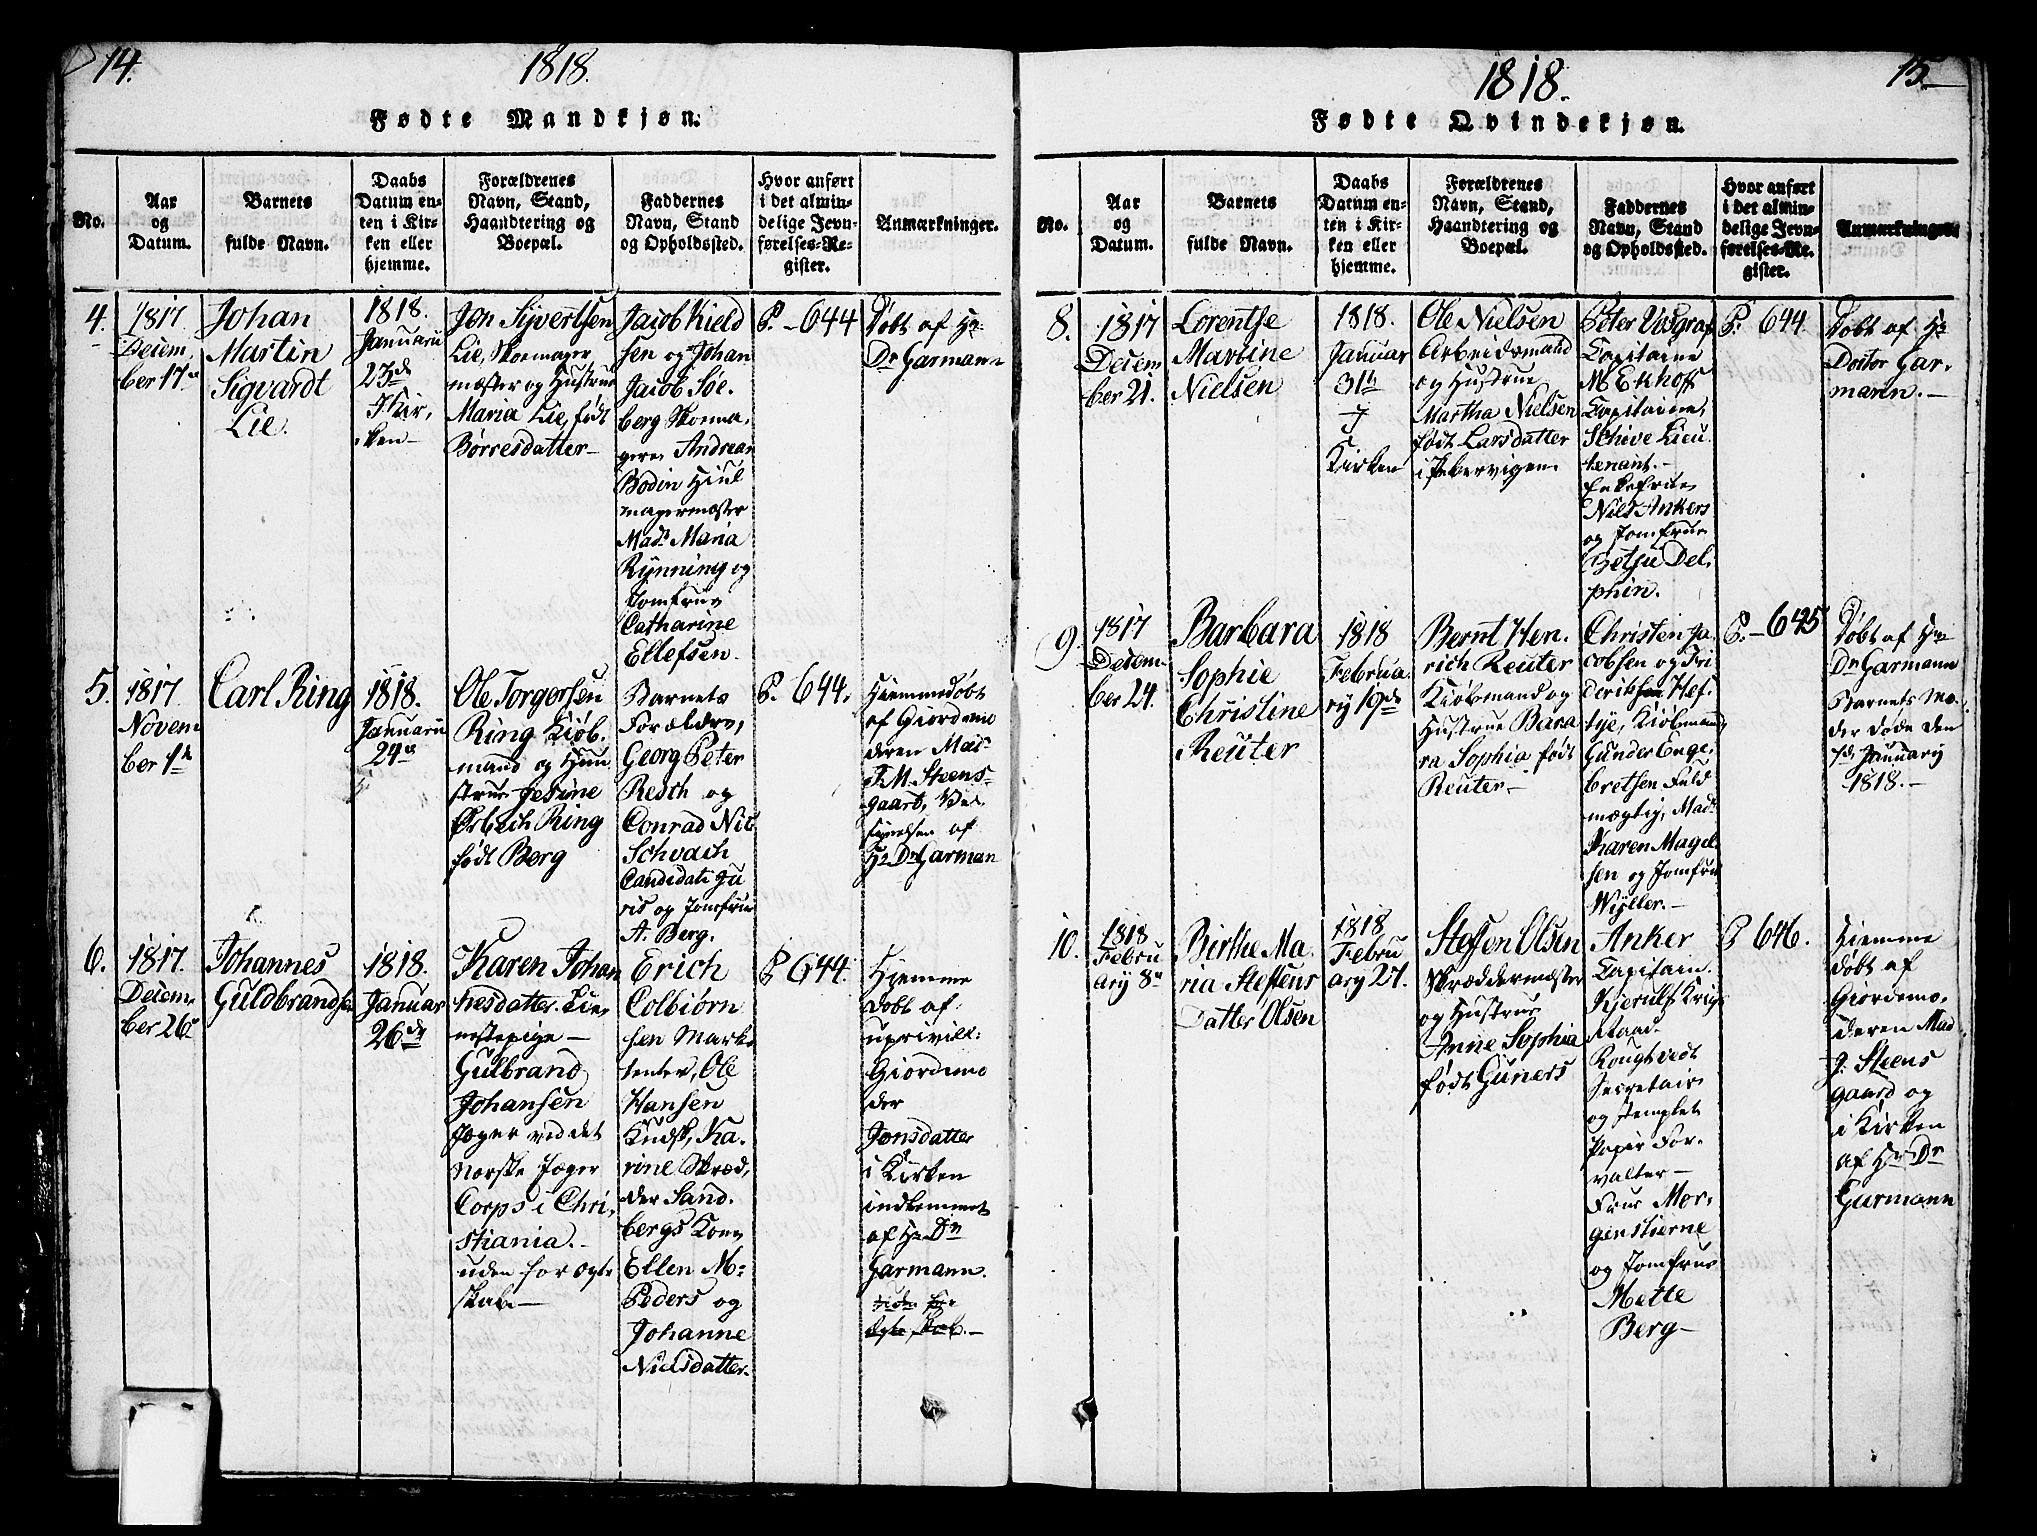 14.
1818.
Fødte Mandkjøn.
No.
Aar
og
Datum.
Barnets
fulde Navn.
Daabs
Datum en-
ten i Kir-
ken eller
hjemme.
Forældrenes
Navn, Stand,
Haandtering og
Boepæl.
Faddernes
Navn, Stand
og Opholdssted.
Hvor anført
i det almin-
delige Jevn-
førelses-Re-
gister.
Anmærkninger.
4.
1817
Decem
ber 17
Johan
Martin
Sigvardt
Lie.
1818.
Januarii
23d
I Kir,
ken
Jon Sijvertsen
Lie, Skomager
mæster og Hustrue
Maria Lie, født
Børresdatter
Jacob Kield
sen og Johan
Jacob Søe
berg Skoma,
gere Andreas
Bodin Hiul
magermæster
Mad: Maria
Rynning og
Jomfrue
Catharine
Ellefsen.
P. - 644
Døbt af Hr
Dr Garmann
5.
1817
Novem
ber 1
Carl Ring
1818.
Januarii
24
Ole Torgersen
Ring Kiøb,
mand og Huu
strue Jesine
Ørbech Ring
født Berg
Barnets
Forældre,
Georg Peter
Resch og
Conrad Nic
Schvach
Candidati Ju
ris og Jomfrue
A. Berg.
P. 644.
Hiemmedøbt
af Giordemo
deren Mad
F. M. Steens
gaard,
af
Hr Dr Garman
6.
1817.
Decem,
ber 26
Johannes
Guldbrandsen
1818.
Januar
26de
Karen Johan
nesdatter. Tie,
nestepige
Gulbrand
Johansen
Jæger ved det
Norske Jæger
Corps i Chri,
stiania.
uden for ægte
skab
Erich
Colbiørn
sen Marke
tenter, Ole
Hansen
Kudsk, Ka,
rine Skræd,
der Sand,
bergs Kone
Ellen M:
Peders og
Johanne
Nielsdatter.
P 644.
Hjemme
døbt af
uprivill:
Giordemo
der
Jonsdatter
i Kirken
indkommet
af Hr Dr
Garmann.
uden for
ægte skab.
15.
1818.
Fødte Qvindekjøn.
No.
Aar
og
Datum.
Barnets
fulde Navn.
Daabs
Datum en-
ten i Kir-
ken eller
hjemme.
Forældrenes
Navn, Stand,
Haandtering og
Boepæl.
Faddernes
Navn, Stand
og Opholdssted.
Hvor anført
i det almin-
delige Jevn-
førelses-Re-
gister.
Anmærkninger.
8.
1817
Decem
ber 21.
Lorentse
Martine
Nielsen
1818.
Januar
31
I
Kirken
Ole Nielsen
Arbeidsmand
og Hustrue
Martha Nielsen
født Larsdatter
i Pebervigen
Peter Vosgraf
Capitaine
M Ekhoff
Capitaine,
Schive Lieu
tenant.
Enkefrue
Niels Ankers
og Jomfrue
Betsu Del,
phin.
P. 644
Døbt af Hr
Doctor Gar,
mann.
9.
1817
Decem
ber 24.
Barbara
Sophie
Christine
Reuter
1818
Februa
ry 19de
Bernt Hen,
rich Reuter
Kiøbmand og
Hustrue Barba
ra Sophia født
Reuter
Christen Ja
cobsen og Fri
derik Hef,
tye, Kiøbmænd,
Gunder Enge,
bretsen Fuld
mægtig, Mad:
Karen Magel
sen og Jomfru
Wyller.
P. - 645
Døbt af Hr
Dr Garmann
Barnets Mo,
der døde den
Januarij
1818.
10.
1818
Febru
ary 8
Birthe Ma
ria Steffens
Datter Olsen
1818
Febru
ary 27.
Steffen Olsen
Skræddermæster
og Hustrue
Anne Sophia
født Guners
Anker
Capitain.
Kjerulf Krigs
Raad
Rougtvedt
Secretair
og Stemplet
Papir For,
valter
Frue Mor,
genstierne
og Jomfrue
Mette
Berg
P 646.
Hiemme
døbt af
Giordemo,
deren Mad
J. Steens
gaard og
i Kirken
af Hr Dr
Garmann